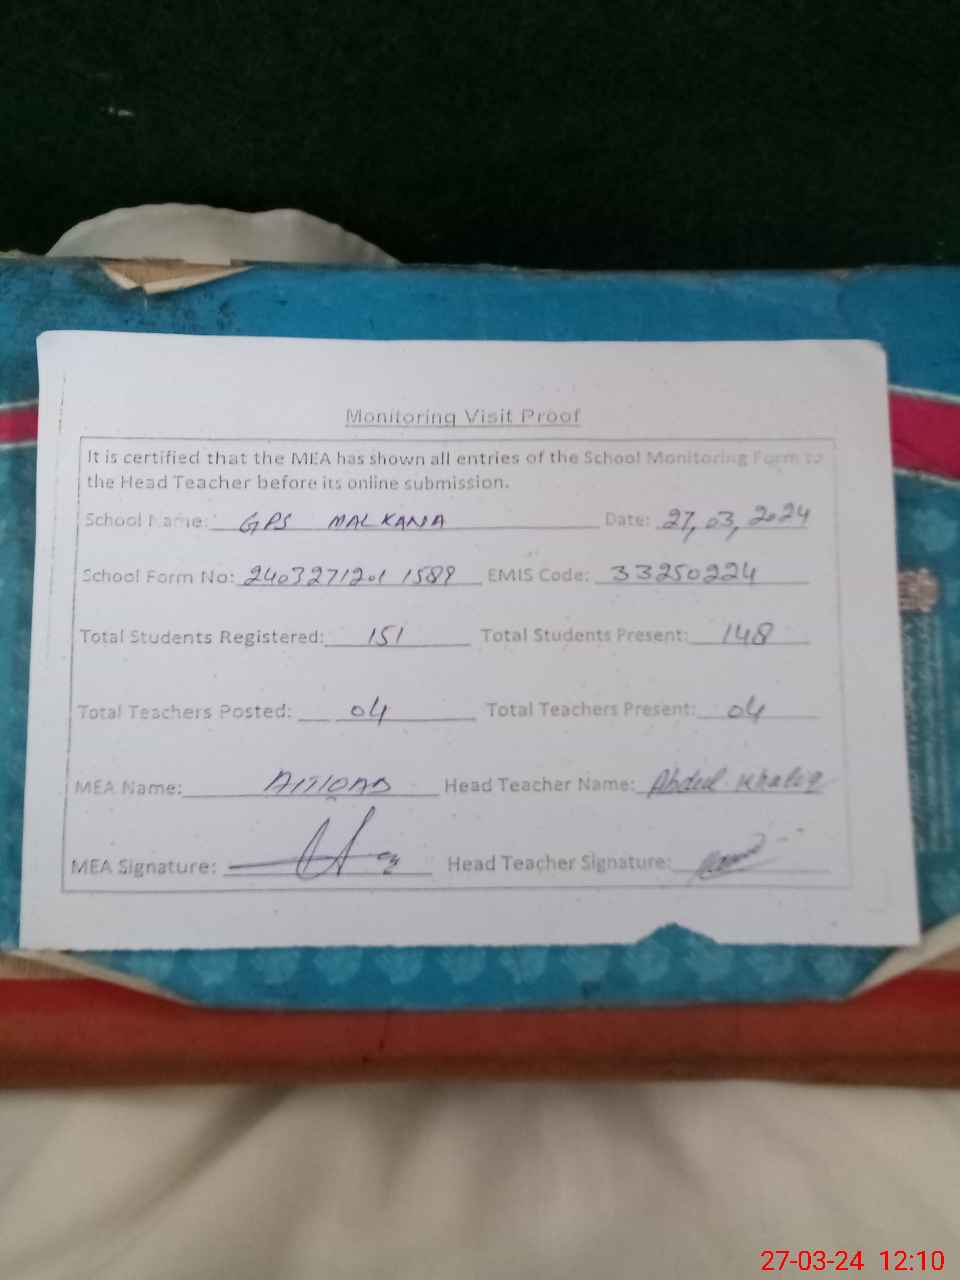 Monitoring Visit Proof
It is certified that the MEA has shown all entries of the School Monitoring Form to
the Head Teacher before its online submission.
School Name: GPS MALKANA Date: 27,03,2024
School Form No: 2403271201 1589 EMIS Code: 33250224
Total Students Registered: 151 Total Students Present: 148
Total Teachers Posted: 04 Total Teachers Present: 04
MEA Name: Head Teacher Name: Abdul Khaliq
MEA Signature: Head Teacher Signature:
27-03-24 12:10